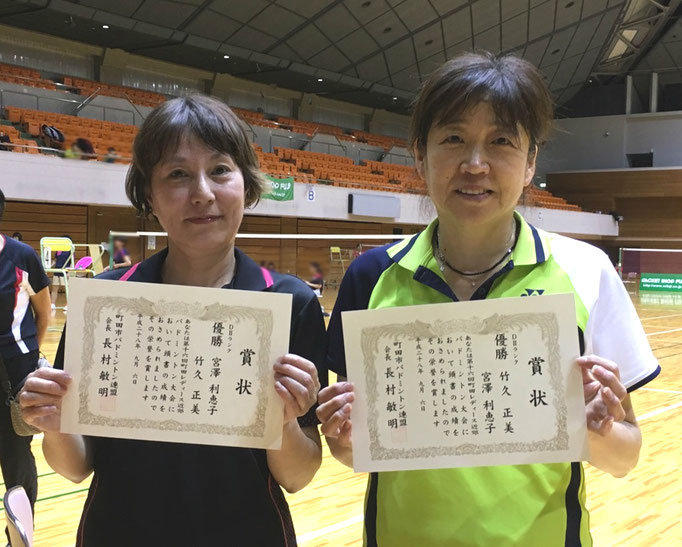 賞状
DⅡランク
優勝 宮澤 利恵子
竹久 正美
あなたは第十六回町田レディース近郊
バドミントン大会に
おいて頭書の成績を
おさめられましたので
その栄誉を賞します
平成二十八年 九月 六日
町田市バドミントン連盟
会長 長村敏明
賞状
DⅡランク
優勝 竹久 正美
宮澤 利恵子
あなたは第十六回町田レディース近郊
バドミントン大会に
おいて頭書の成績を
おさめられましたので
その栄誉を賞します
平成二十八年 九月 六日
町田市バドミントン連盟
会長 長村敏明
B